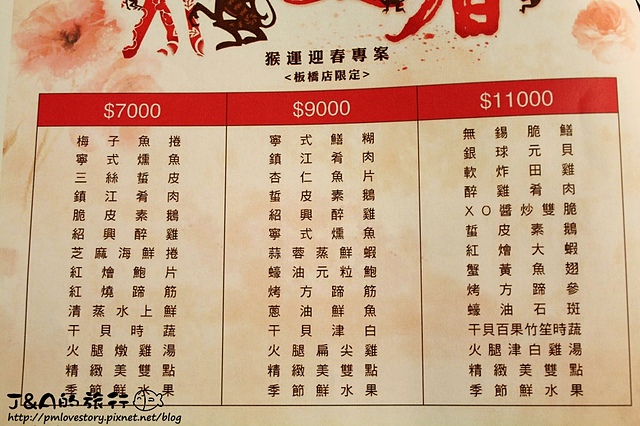 猴運迎春專案
<板橋店限定>
$7000
梅子魚捲
寧式燻魚
三絲蜇皮
鎮江肴肉
脆皮素鵝
紹興醉雞
芝麻海鮮捲
紅燴鮑片
紅燒蹄筋
清蒸水上鮮
干貝時蔬
火腿燉雞湯
精緻美雙點
季節鮮水果
$9000
寧式鱔糊
鎮江肴肉
杏仁魚片
蜇皮素鵝
紹興醉雞
寧式燻魚
蒜蓉蒸鮮蝦
蠔油元粒鮑
烤方蹄筋
蔥油鮮魚
干貝津白
火腿扁尖雞
精緻美雙點
季節鮮水果
$11000
無錫脆鱔
銀球元貝
軟炸田雞
醉雞肴肉
XO醬炒雙脆
蜇皮素鵝
紅燴大蝦
蟹黃魚翅
烤方蹄參
蠔油石斑
干貝百果竹笙時蔬
火腿津白雞湯
精緻美雙點
季節鮮水果
J&A的旅行
http://pmlovestory.pixnet.net/blog